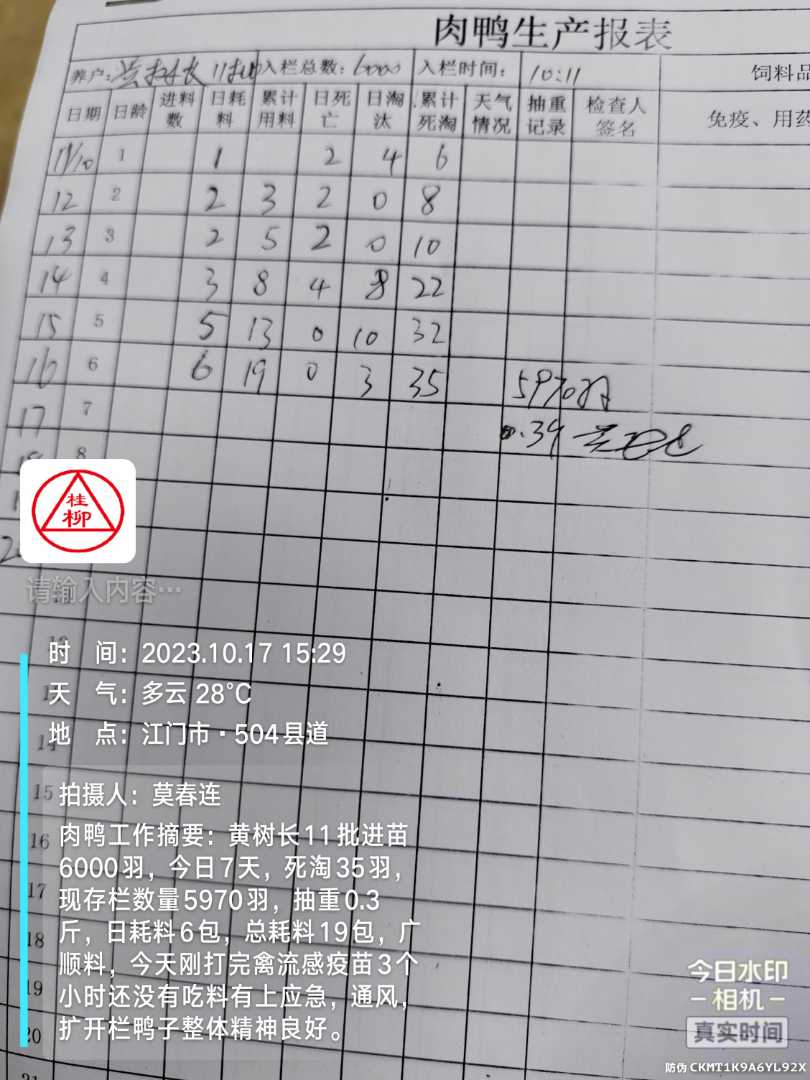 肉鸭生产报表
养户: 黄树长 11批 入栏总数: 6000 入栏时间: 10:11 饲料品
日期 日龄 进料数 日耗料 累计用料 日死亡 日淘汰 累计死淘 天气情况 抽重记录 检查人签名 免疫、用药
11/10 1 1 2 4 6
12 2 2 3 2 0 8
13 3 2 5 2 0 10
14 4 3 8 4 8 22
15 5 5 13 0 10 32
16 6 6 19 0 3 35 5970羽
17 7 0.34
8
桂柳
请输入内容…
时 间: 2023.10.17 15:29
天 气: 多云 28℃
地 点: 江门市·504县道
14
15 拍摄人: 莫春连
16 肉鸭工作摘要: 黄树长11批进苗
6000羽，今日7天，死淘35羽，
17 现存栏数量5970羽，抽重0.3
18 斤，日耗料6包，总耗料19包，广
顺料，今天刚打完禽流感疫苗3个
19 小时还没有吃料有上应急，通风，
20 扩开栏鸭子整体精神良好。
21
今日水印
相机
真实时间
防伪 CKMT1K9A6YL92X